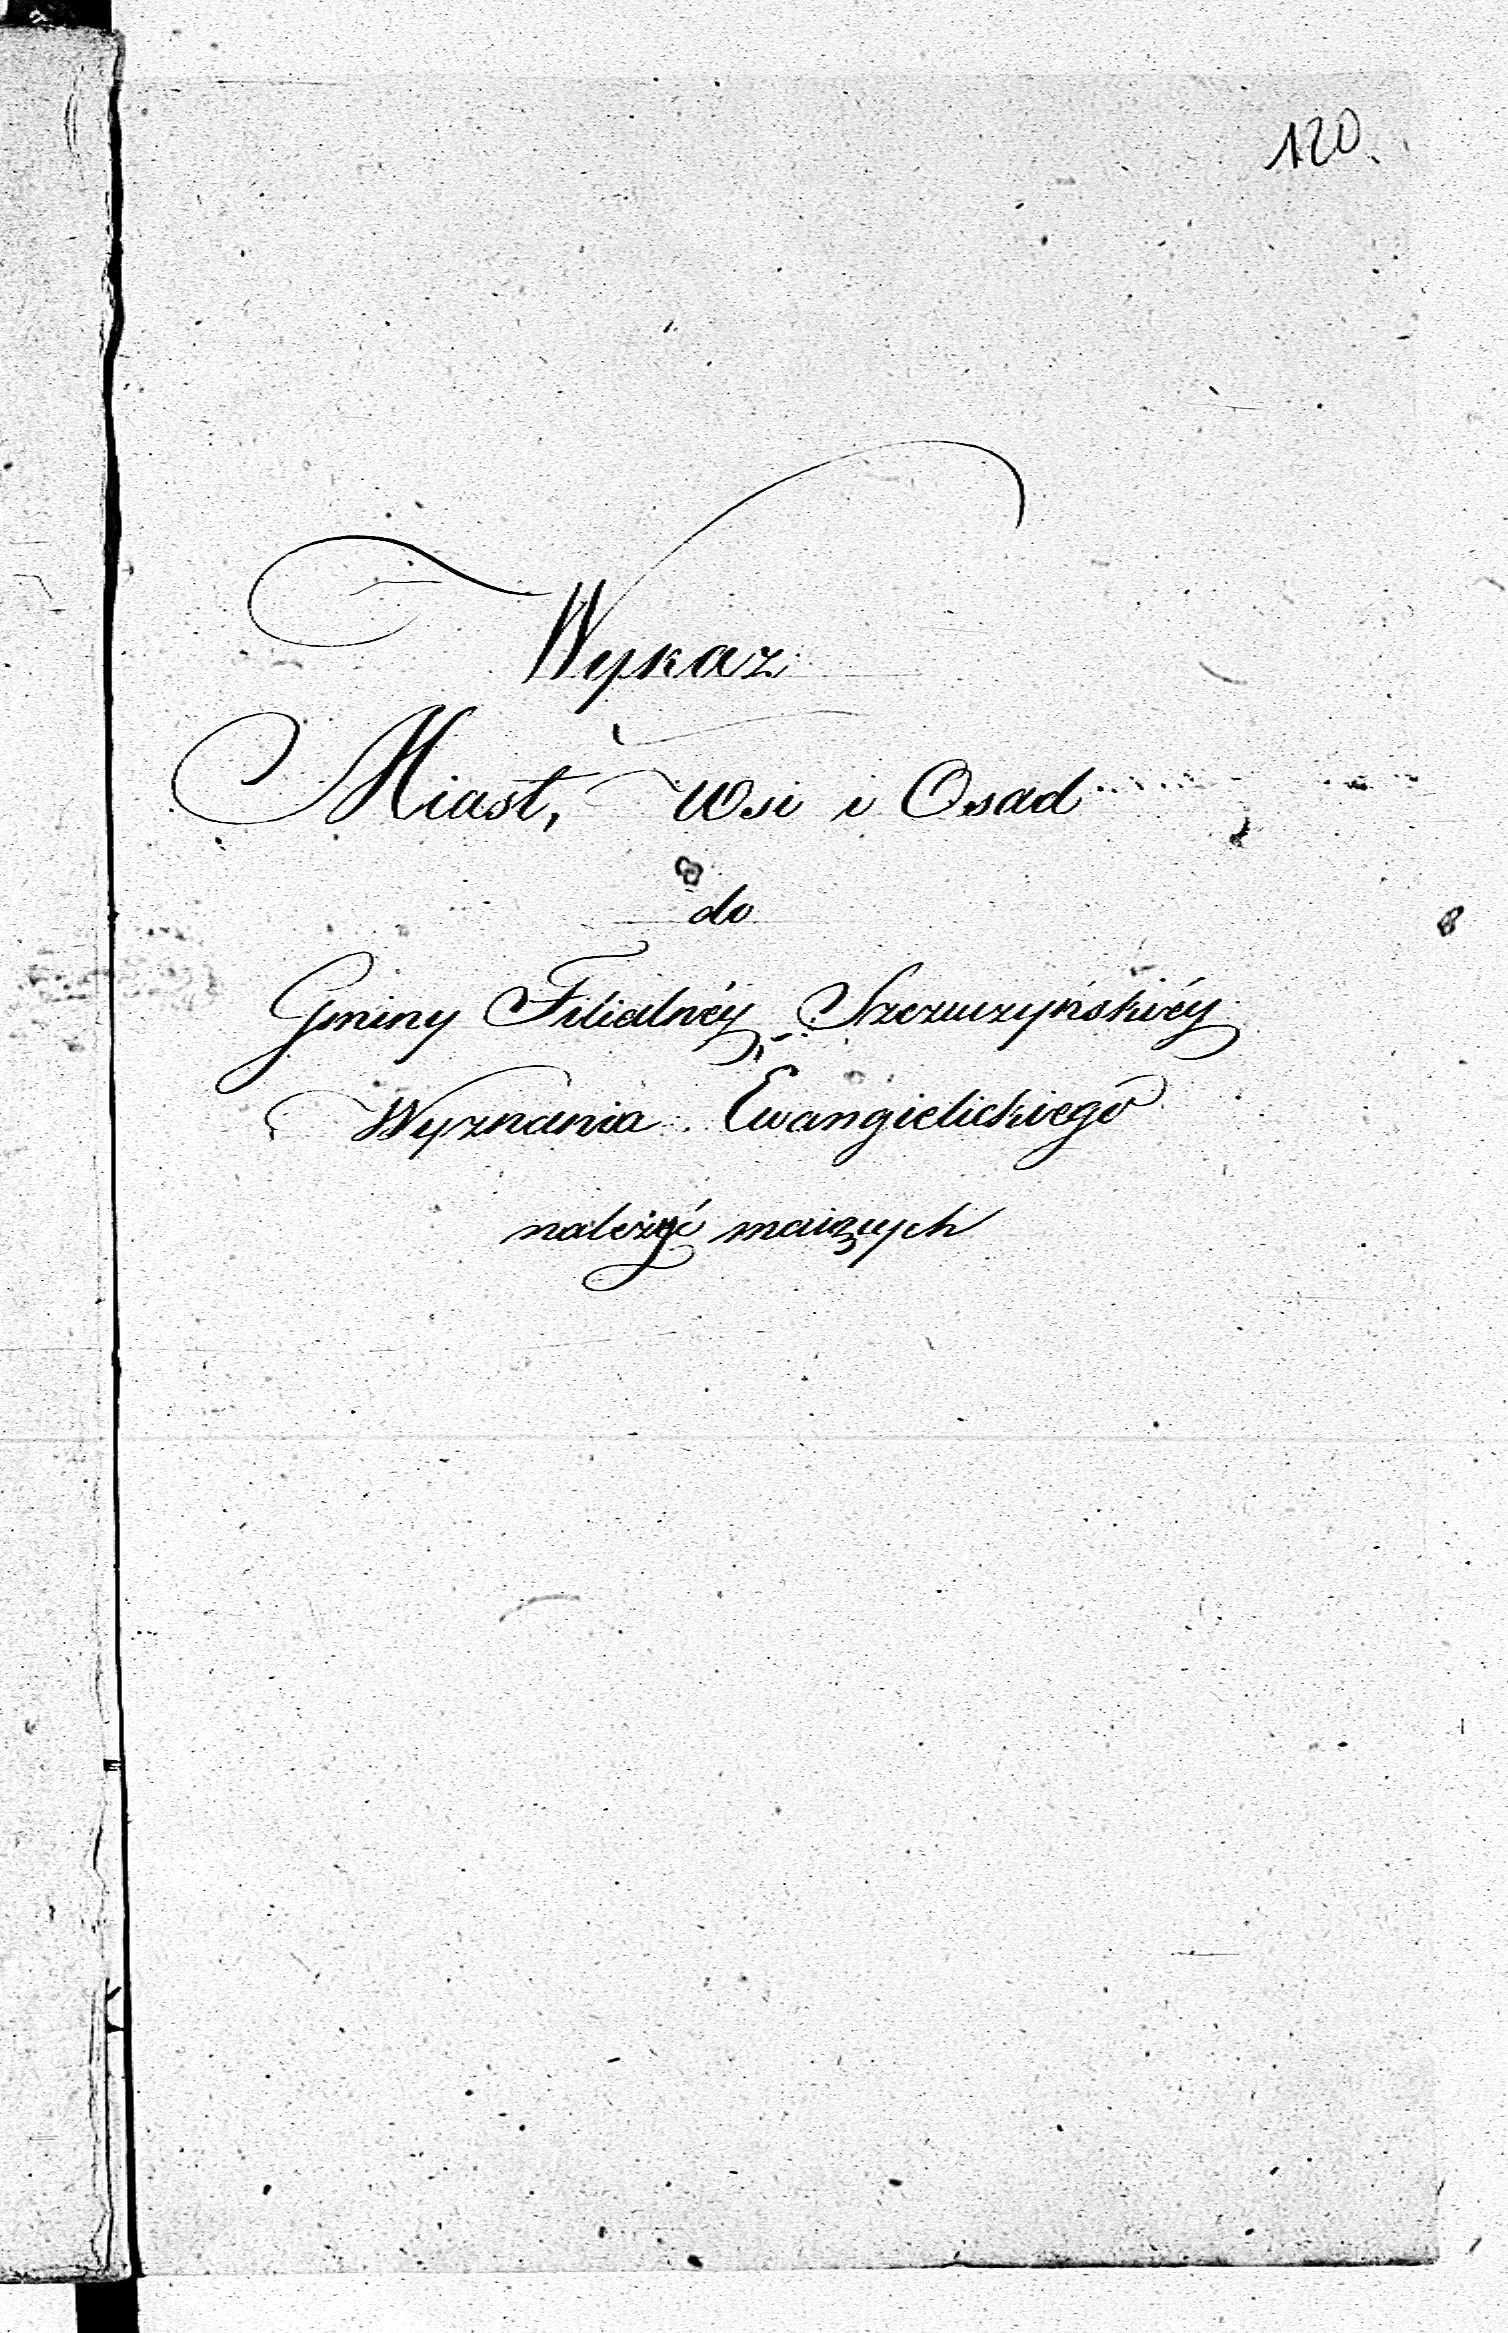 120
Wykaz
Miast, Wsi i Osad
do
Gminy Filialnéy Szczuczyńskiéy
Wyznania Ewangielickiego
należyć maiących